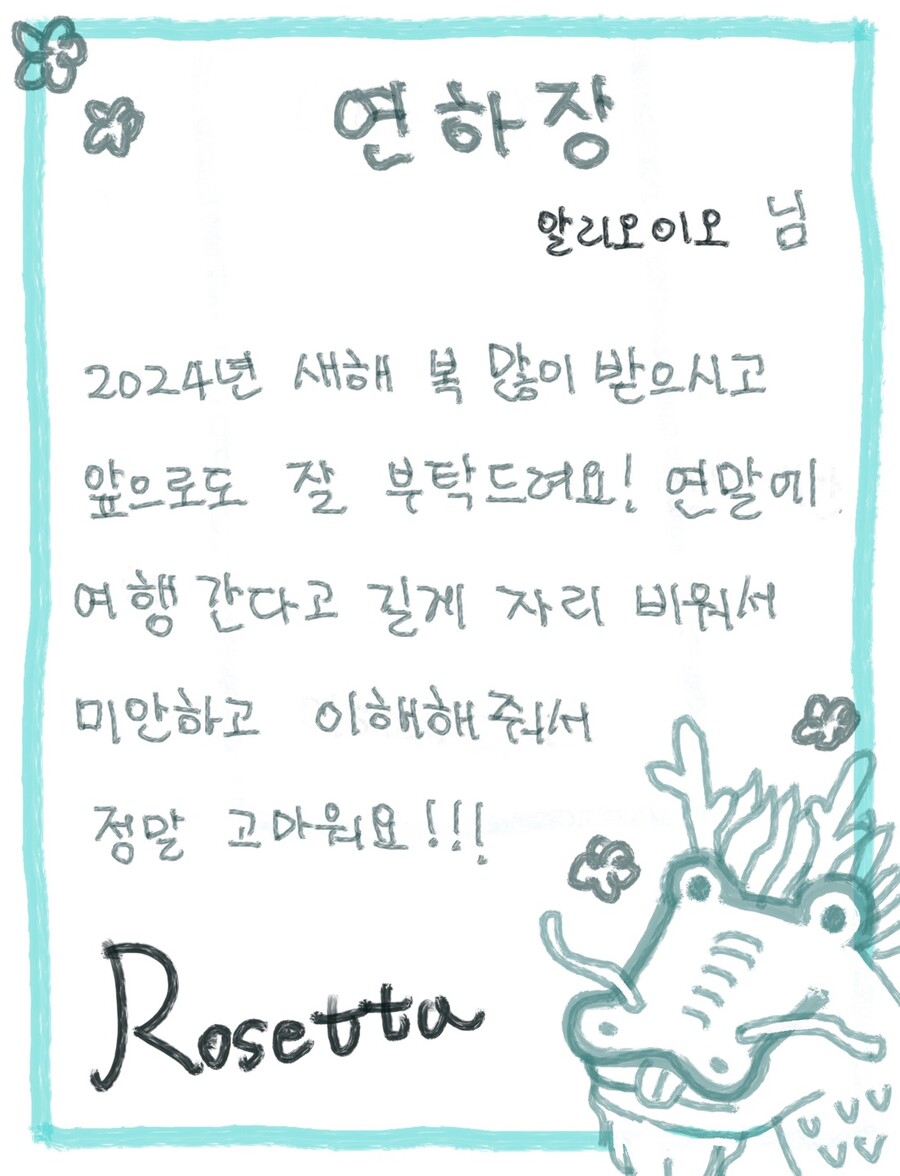 연하장
알리오이오 님
2024년 새해 복 많이 받으시고
앞으로도 잘 부탁드려요! 연말에
여행 간다고 길게 자리 비워서
미안하고 이해해줘서
정말 고마워요!!!
Rosetta